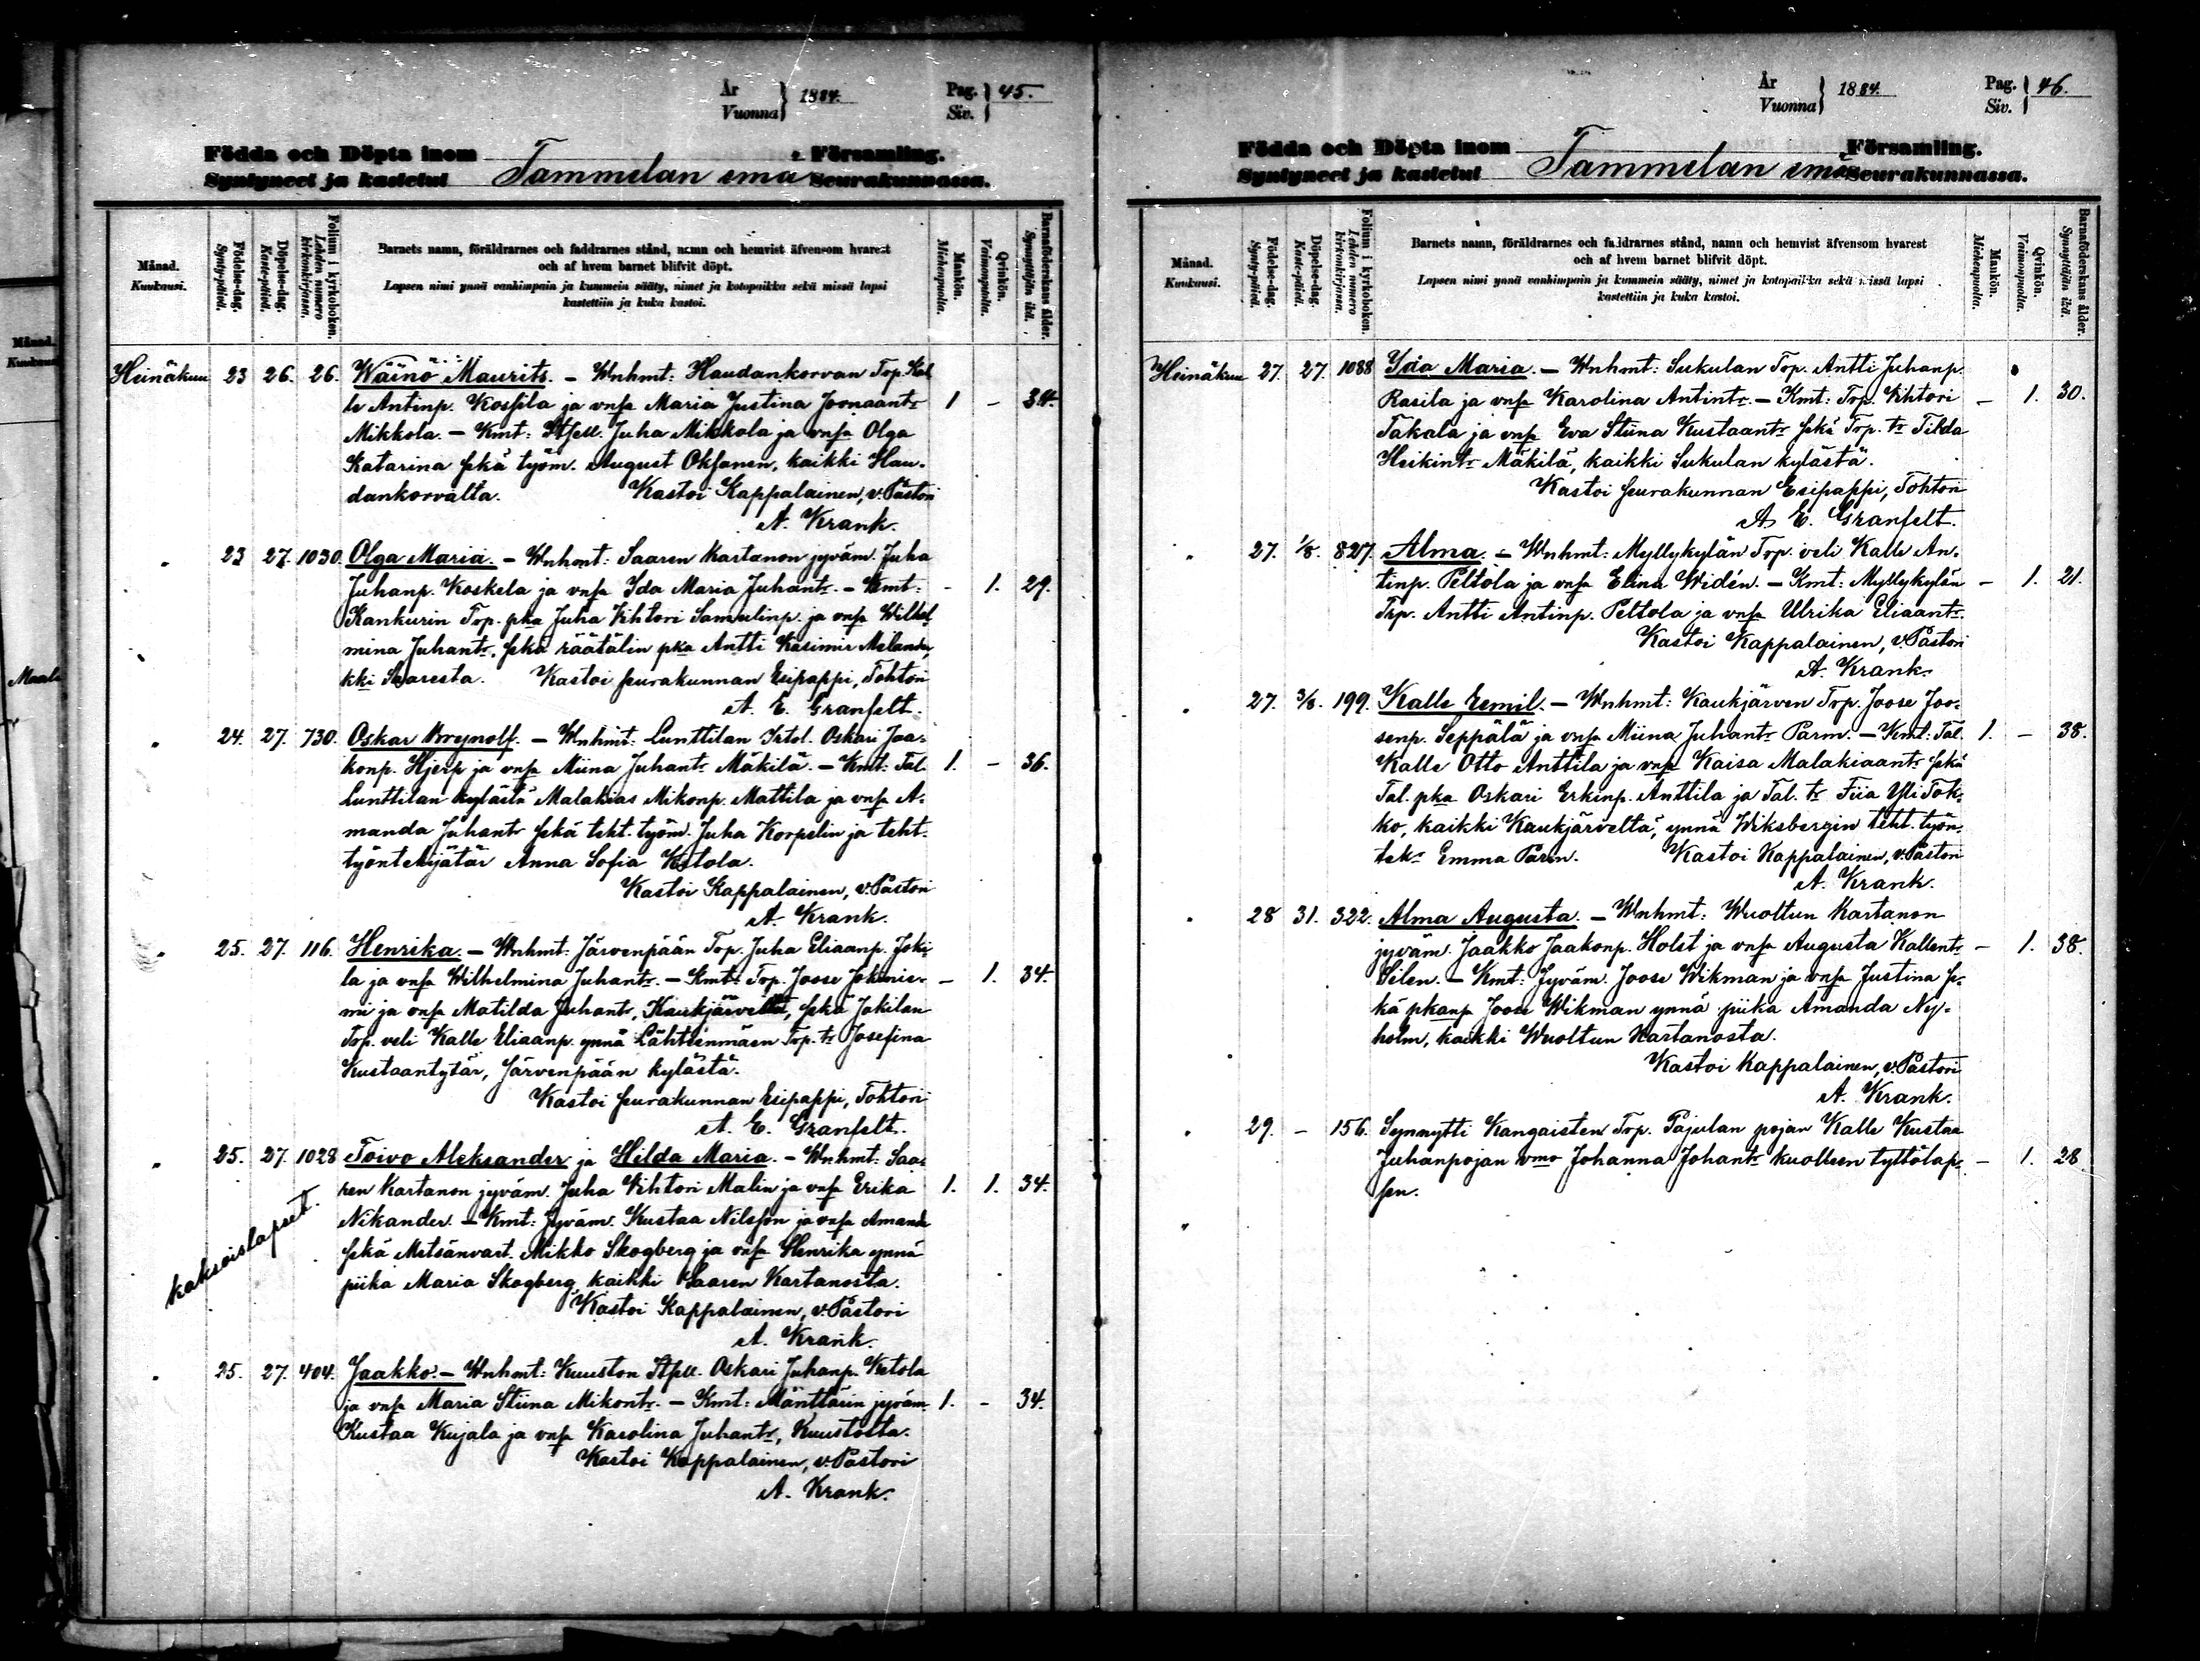 År
Vuonna } 1884.
Pag.
Siv. } 45.
Födda och Döpta inom Församling.
Syntyneet ja kastetut Tammelan emä Seurakunnassa.
Månad.
Kuukausi.
Födelse-dag.
Synty-päivä.
Döpelse-dag.
Kaste-päivä.
Folium i kyrkoboken.
Lehden numero kirkonkirjassa.
Barnets namn, föräldrarnes och faddrarnes stånd, namn och hemvist äfvensom hvarest
och af hvem barnet blifvit döpt.
Lapsen nimi ynnä vanhimpain ja kummein sääty, nimet ja kotopaikka sekä missä lapsi
kastettiin ja kuka kastoi.
Mankön.
Miehenpuolta.
Qvinkön.
Vaimonpuolta.
Barnaföderskans ålder.
Synnyttäjän ikä.
Heinäkuu 23 26. 26. Wäinö Maurits. – Wnhmt: Haudankorvan Trp. Kal
le Antinp. Kossila ja vnsa Maria Justina Joonaantr 1 – 34.
Mikkola. – Kmt: Itsell. Juha Mikkola ja vnsa Olga
Katarina sekä työm. August Oksanen, kaikki Hau-
dankorvalta. Kastoi Kappalainen, v. Pastori
A. Krank.
" 23 27. 1030. Olga Maria. – Wnhmt: Saaren Kartanon jyväm. Juha
Juhanp. Koskela ja vnsa Ida Maria Juhantr. – Kmt: – 1. 29.
Kankurin Trp. pka Juha Vihtori Samulinp. ja vnsa Wilhel
mina Juhantr. sekä räätälin pka Antti Kasimir Melander,
kki Saaresta. Kastoi seurakunnan Esipappi, Tohtori
A. E. Granfelt.
" 24. 27. 730. Oskar Brynolf. – Wnhmt: Lunttilan Irtol. Oskari Jaa-
konp. Hjerp ja vnsa Miina Juhantr Mäkilä. – Kmt: Tal. 1. – 36.
Lunttilan kylästä Malakias Mikonp. Mattila ja vnsa A-
manda Juhantr sekä teht. työm. Juha Korpelin ja teht-
työntekijätär Anna Sofia Ketola.
Kastoi Kappalainen, v. Pastori
A. Krank.
" 25. 27. 116. Henrika. – Wnhmt: Järvenpään Trp. Juha Eliaanp. Joki-
la ja vnsa Wilhelmina Juhantr. – Kmt: Trp. Joose Jokinie- – 1. 34.
mi ja vnsa Matilda Juhantr, Kaukjärveltä, sekä Jokilan
Trp. veli Kalle Eliaanp. ynnä Lähteenmäen Trp. tr Josefina
Kustaantytär, Järvenpään kylästä.
Kastoi seurakunnan Esipappi, Tohtori
A. E. Granfelt.
" 25. 27. 1028 Toivo Aleksander ja Hilda Maria. – Wnhmt: Saa-
ren Kartanon jyväm. Juha Vihtori Malin ja vnsa Erika 1. 1. 34.
Nikander. – Kmt: Jyväm. Kustaa Nilsson ja vnsa Amanda
sekä Metsänvart. Mikko Skogberg ja vnsa Henrika ynnä
piika Maria Skogberg, kaikki Saaren Kartanosta.
kaksoislapset.
Kastoi Kappalainen, v. Pastori
A. Krank.
" 25. 27. 404. Jaakko. – Wnhmt: Kuuston Itsell. Oskari Juhanp. Ketola
ja vnsa Maria Stiina Mikontr. – Kmt: Mänttärin jyväm. 1. – 34.
Kustaa Kujala ja vnsa Karolina Juhantr, Kuustosta.
Kastoi Kappalainen, v. Pastori
A. Krank.
År
Vuonna } 1884.
Pag.
Siv. } 46.
Födda och Döpta inom Församling.
Syntyneet ja kastetut Tammelan emä Seurakunnassa.
Månad.
Kuukausi.
Födelse-dag.
Synty-päivä.
Döpelse-dag.
Kaste-päivä.
Folium i kyrkoboken.
Lehden numero kirkonkirjassa.
Barnets namn, föräldrarnes och faddrarnes stånd, namn och hemvist äfvensom hvarest
och af hvem barnet blifvit döpt.
Lapsen nimi ynnä vanhimpain ja kummein sääty, nimet ja kotopaikka sekä missä lapsi
kastettiin ja kuka kastoi.
Mankön.
Miehenpuolta.
Qvinkön.
Vaimonpuolta.
Barnaföderskans ålder.
Synnyttäjän ikä.
Heinäkuu 27. 27. 1088 Yda Maria. – Wnhmt: Sukulan Trp. Antti Juhanp.
Rasila ja vnsa Karolina Antintr. – Kmt: Trp. Vihtori – 1. 30.
Takala ja vnsa Eva Stiina Kustaantr sekä Trp. tr Tilda
Heikintr Mäkilä, kaikki Sukulan kylästä.
Kastoi seurakunnan Esipappi, Tohtori
A. E. Granfelt.
" 27. 1/8. 827. Alma. – Wnhmt: Myllykylän Trp. veli Kalle An-
tinp. Peltola ja vnsa Elina Widén. – Kmt: Myllykylän – 1. 21.
Trp. Antti Antinp. Peltola ja vnsa Ulrika Eliaantr.
Kastoi Kappalainen, v. Pastori
A. Krank.
" 27. 3/8. 199. Kalle Eemil. – Wnhmt: Kaukjärven Trp. Joose Joo-
senp. Seppälä ja vnsa Miina Juhantr Parm. – Kmt: Tal. 1. – 38.
Kalle Otto Anttila ja vnsa Kaisa Malakiaantr sekä
Tal. pka Oskari Erkinp. Anttila ja Tal. tr Fiia Yli Tok-
ko, kaikki Kaukjärveltä, ynnä Wiksbergin teht. työn-
tekr Emma Parm. Kastoi Kappalainen, v. Pastori
A. Krank.
" 28 31. 322. Alma Augusta. – Wnhmt: Wuoltun Kartanon
jyväm. Jaakko Jaakonp. Holst ja vnsa Augusta Kallentr – 1. 38.
Silen. – Kmt: Jyväm. Joose Wikman ja vnsa Justina se-
kä pkansa Joose Wikman ynnä piika Amanda Ny-
holm, kaikki Wuoltun Kartanosta.
Kastoi Kappalainen, v. Pastori
A. Krank.
" 29. – 156. Synnytti Kangaisten Trp. Pajulan pojan Kalle Kustaa
Juhanpojan vmo Johanna Johantr kuolleen tyttölap- – 1. 28
sen.